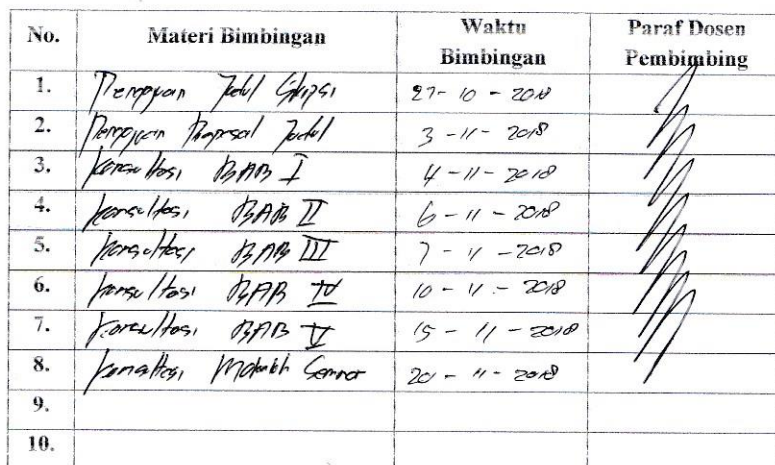 No. Materi Bimbingan Waktu Bimbingan Paraf Dosen Pembimbing
1. Pengajuan Judul Skripsi 27-10-2018
2. Pengajuan Proposal Judul 3-11-2018
3. Konsultasi BAB I 4-11-2018
4. Konsultasi BAB II 6-11-2018
5. Konsultasi BAB III 7-11-2018
6. Konsultasi BAB IV 10-11-2018
7. Konsultasi BAB V 15-11-2018
8. Konsultasi Makalah Seminar 20-11-2018
9.
10.